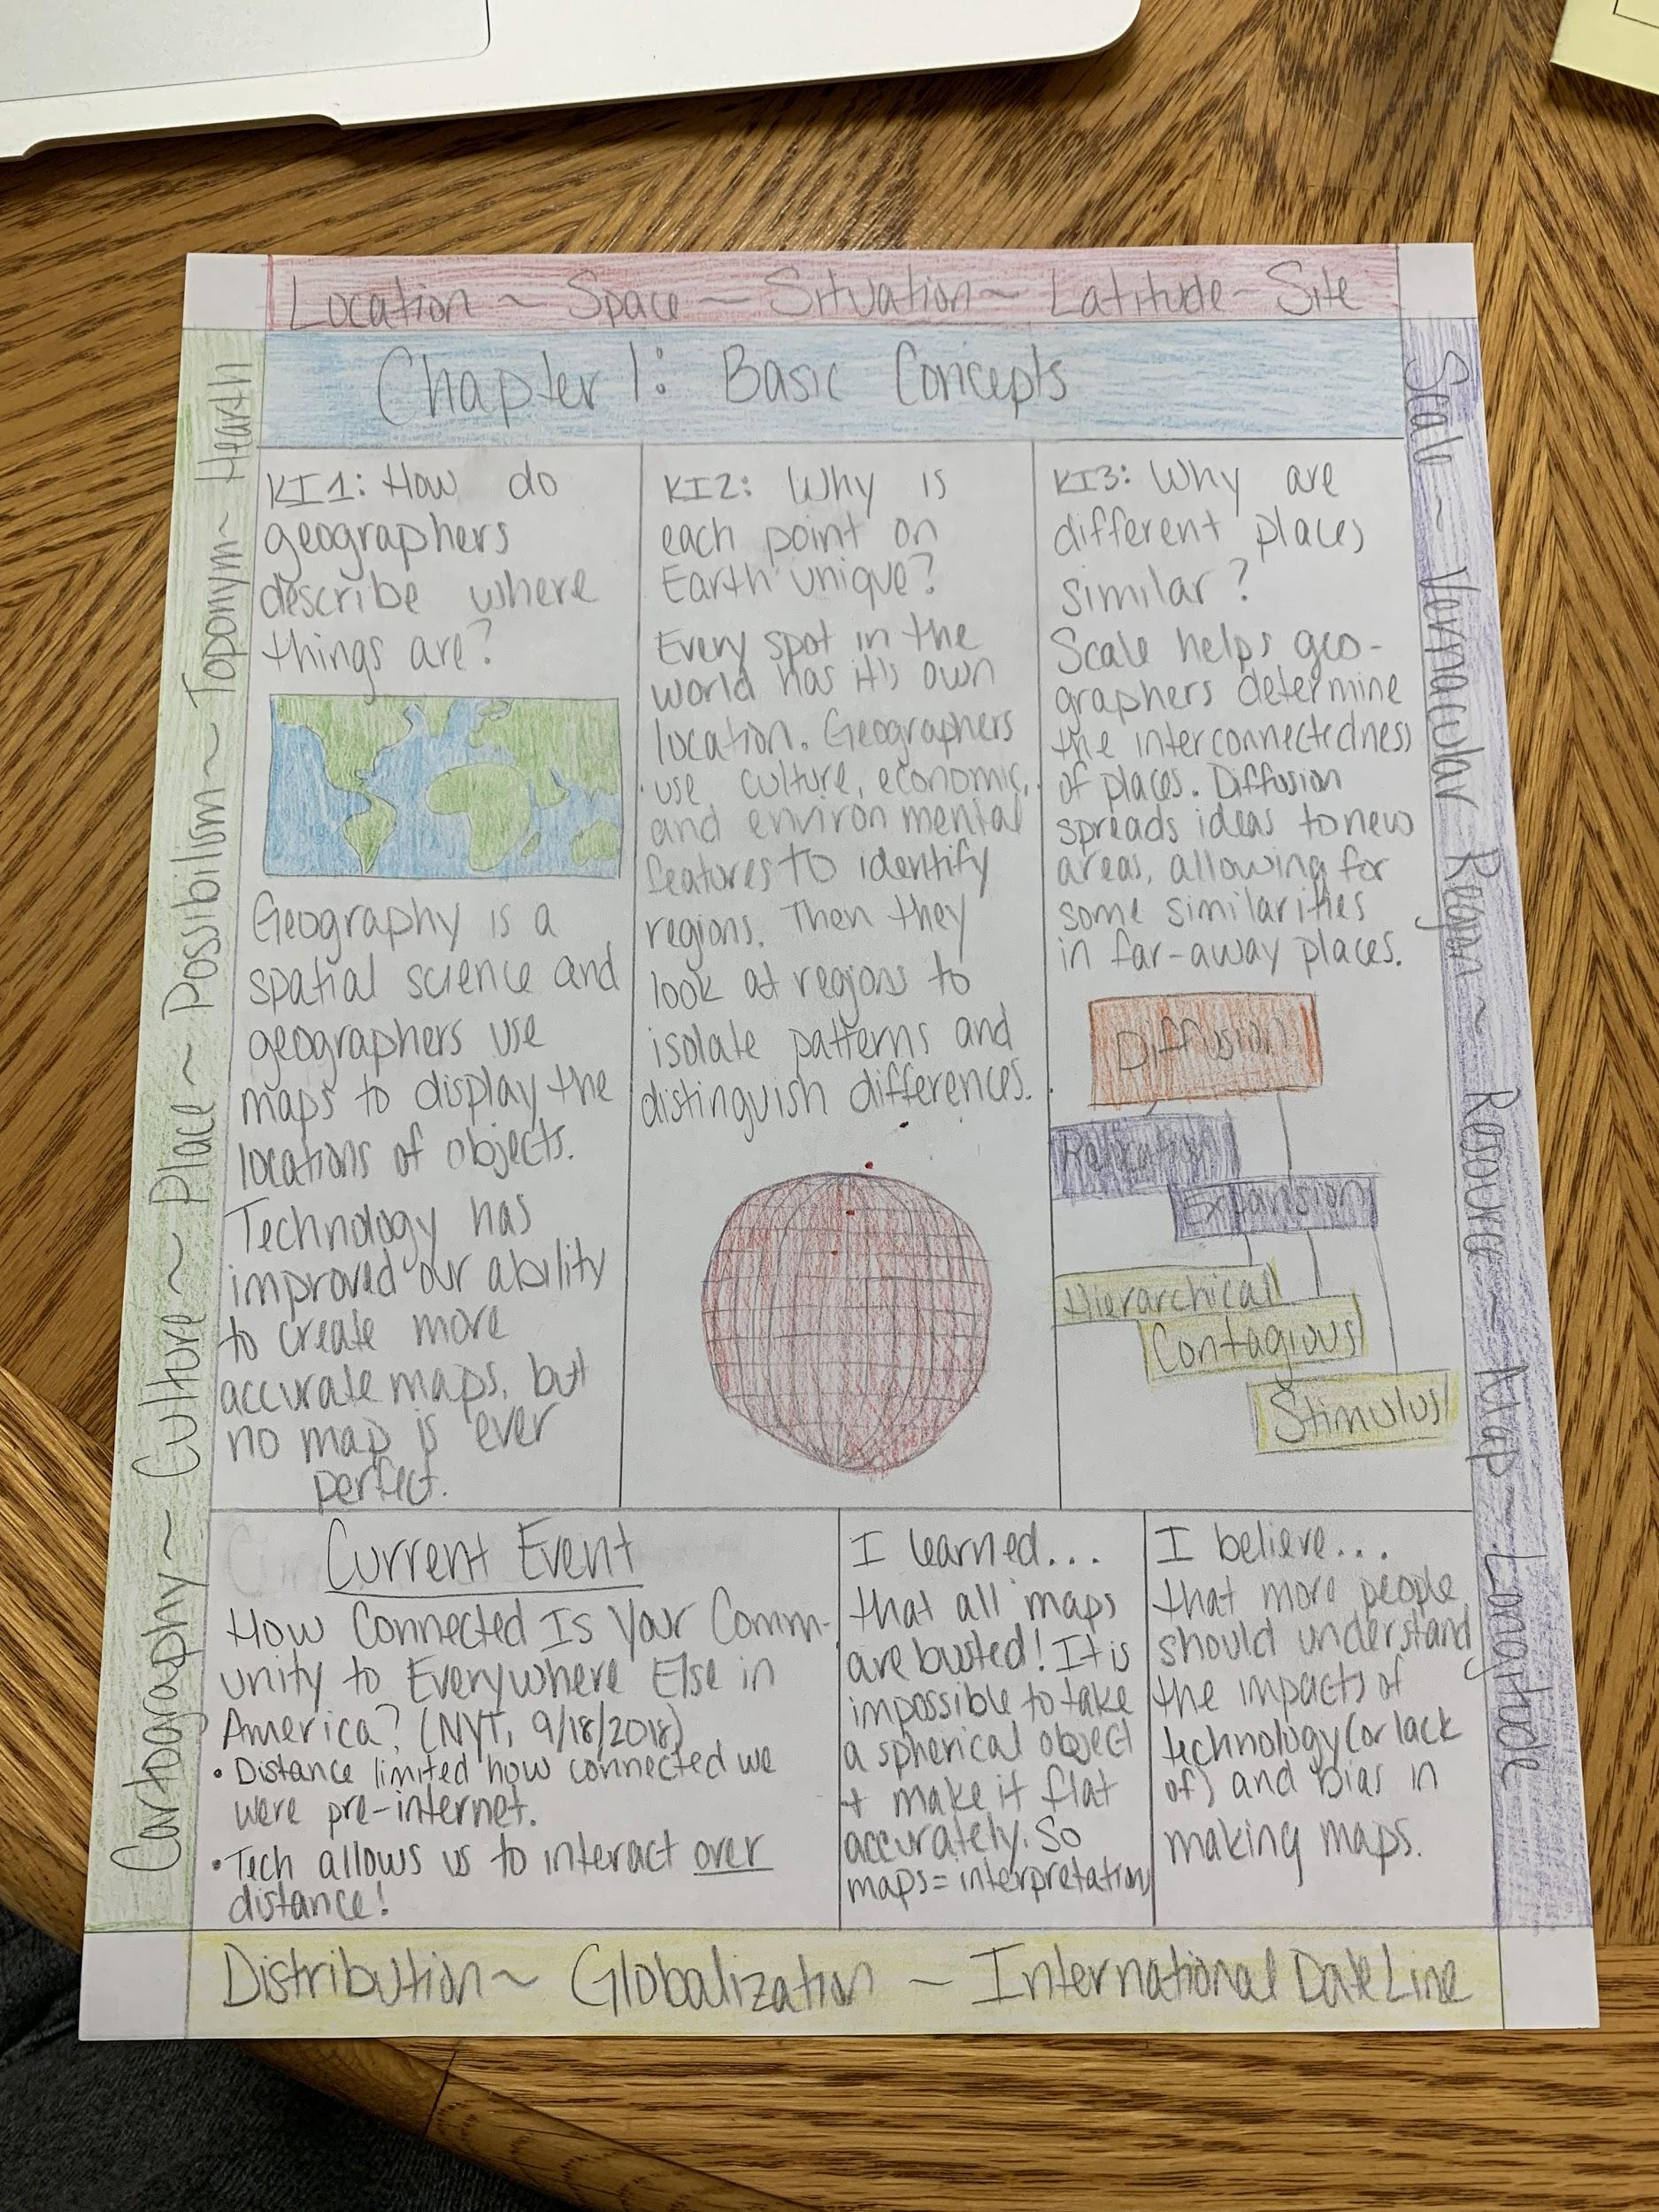 Location ~ Space ~ Situation ~ Latitude - Site
Chapter 1: Basic Concepts
Cartography ~ Culture ~ Place ~ Possibilism ~ Toponym ~ Hearth
KI1: How do
geographers
describe where
things are?
Geography is a
spatial science and
geographers use
maps to display the
locations of objects.
Technology has
improved our ability
to create more
accurate maps, but
no map is ever
perfect.
KI2: Why is
each point on
Earth unique?
Every spot in the
world has it's own
location. Geographers
use culture, economic,
and environmental
features to identify
regions. Then they
look at regions to
isolate patterns and
distinguish differences.
KI3: Why are
different places
similar?
Scale helps geo-
graphers determine
the interconnectedness
of places. Diffusion
spreads ideas to new
areas, allowing for
some similarities
in far-away places.
Diffusion
Relocation
Expansion
Hierarchical
Contagious
Stimulus
Scale ~ Vernacular Region ~ Resource ~ Map ~ Longitude
Current Event
How Connected Is Your Comm-
unity to Everywhere Else in
America? (NYT, 9/18/2018)
• Distance limited how connected we
were pre-internet.
• Tech allows us to interact over
distance!
I learned...
that all maps
are busted! It is
impossible to take
a spherical object
+ make it flat
accurately. So
maps = interpretation
I believe...
that more people
should understand
the impacts of
technology (or lack
of) and bias in
making maps.
Distribution ~ Globalization ~ International Date Line